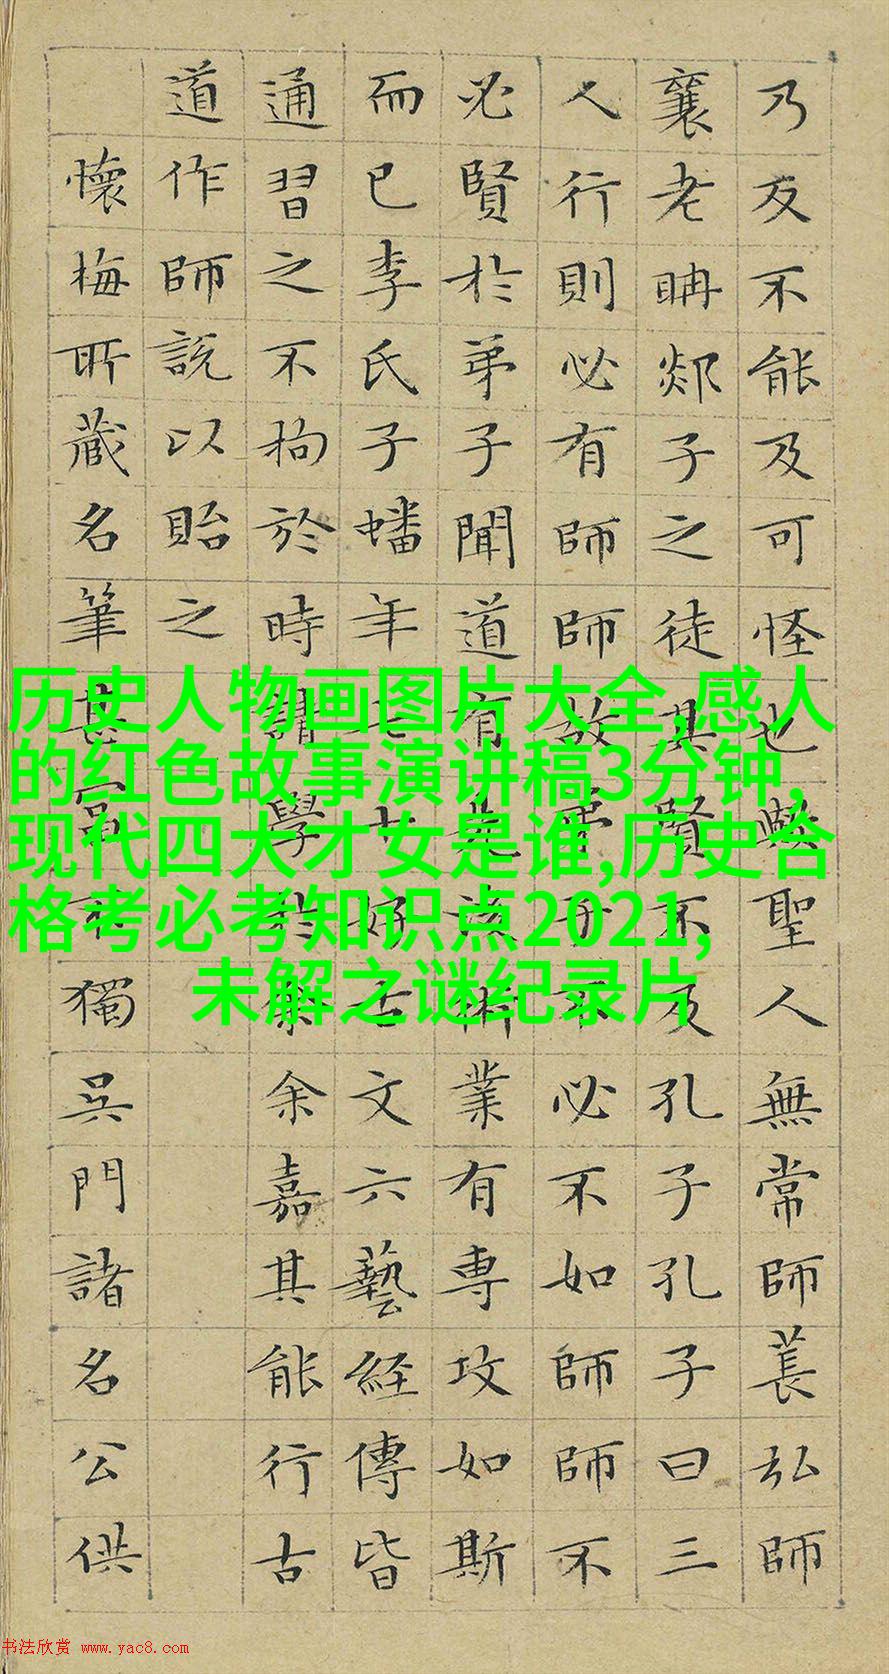 乃反不能及可怪也歟聖人無常師萇弘師
襄老聃郯子之徒其賢不及孔子孔子曰三
人行則必有師師故弟子不必不如師師不
必賢於弟子聞道有先後術業有專攻如斯
而已李氏子蟠年十七好古文六藝經傳皆
通習之不拘於時請學於余余嘉其能行古
道作師說以貽之
懷梅所藏名筆甚富獨吳門諸名公供
历史人物画图片大全,感人
的红色故事演讲稿3分钟,
现代四大才女是谁,历史合
格考必考知识点2021,
未解之谜纪录片
书法欣赏 www.yac8.com